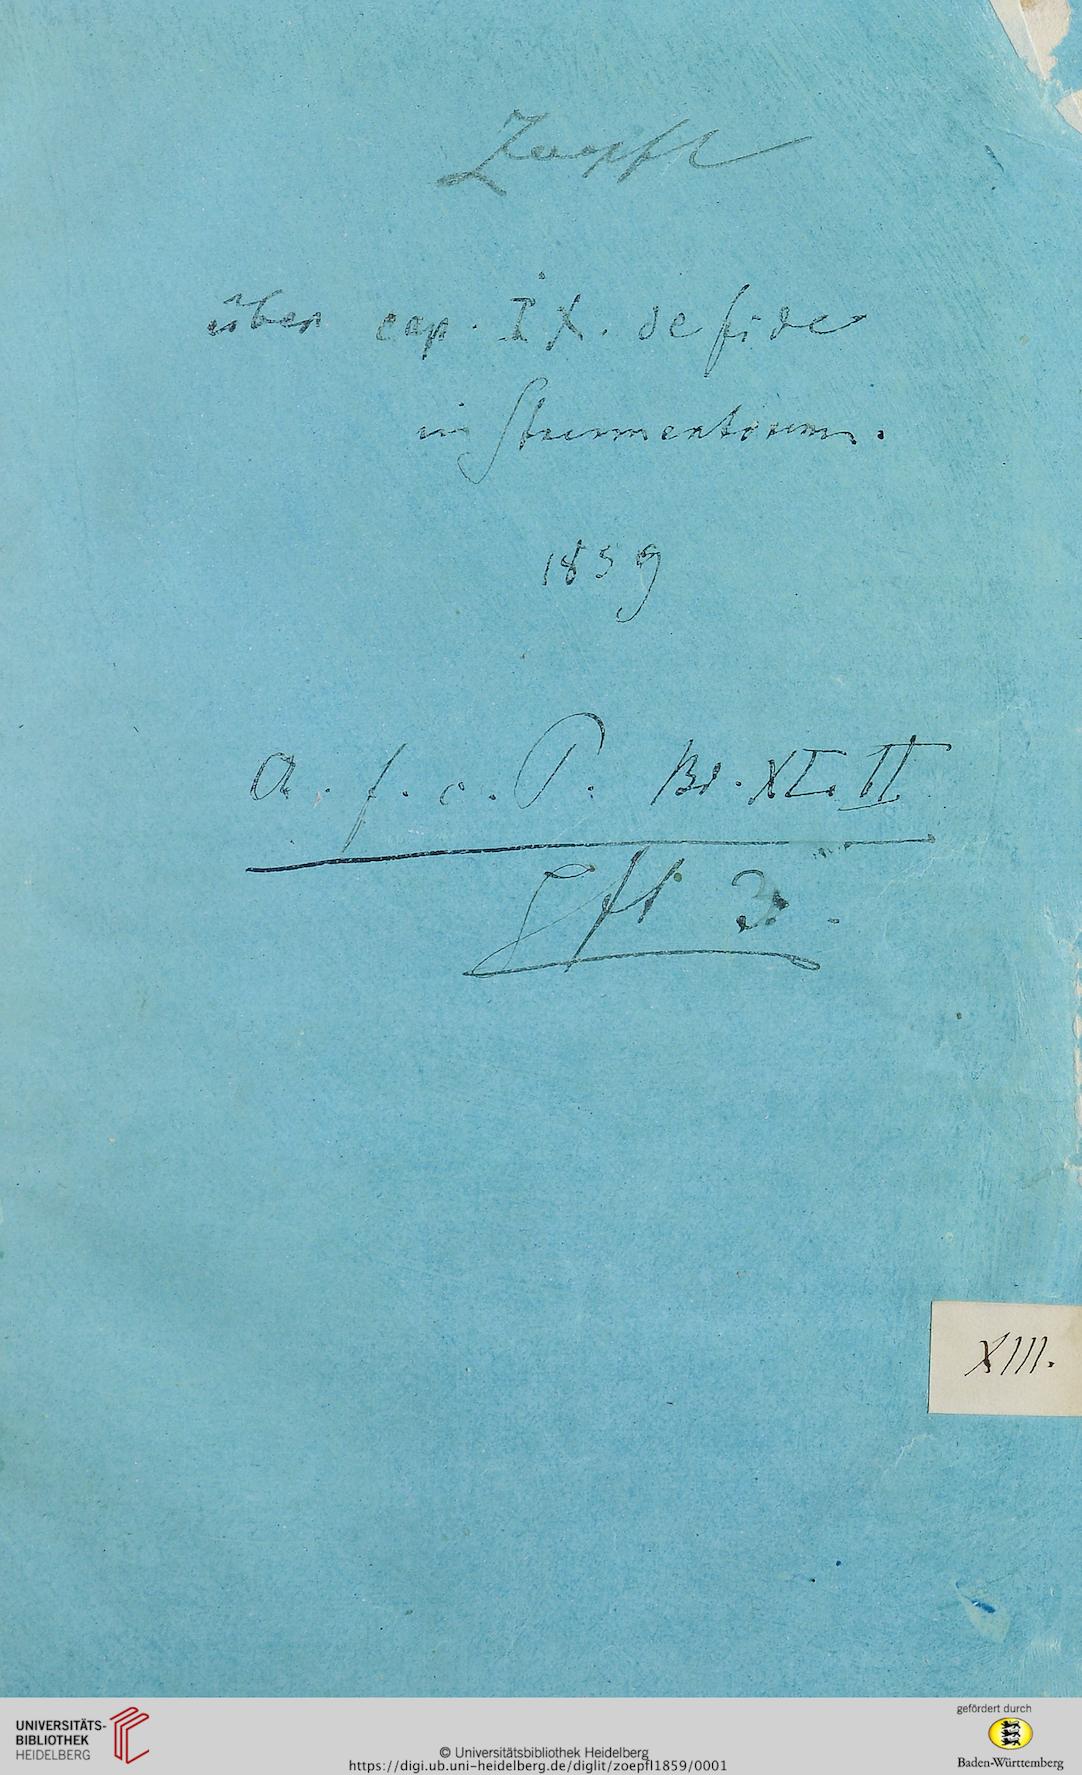 Zoepfl
über cap. IX. de fide
instrumentorum.
1859
A. f. c. P. Bd. XLII
Hft 3.
XIII.
UNIVERSITÄTS-
BIBLIOTHEK
HEIDELBERG
© Universitätsbibliothek Heidelberg
https://digi.ub.uni-heidelberg.de/diglit/zoepfl1859/0001
gefördert durch
Baden-Württemberg